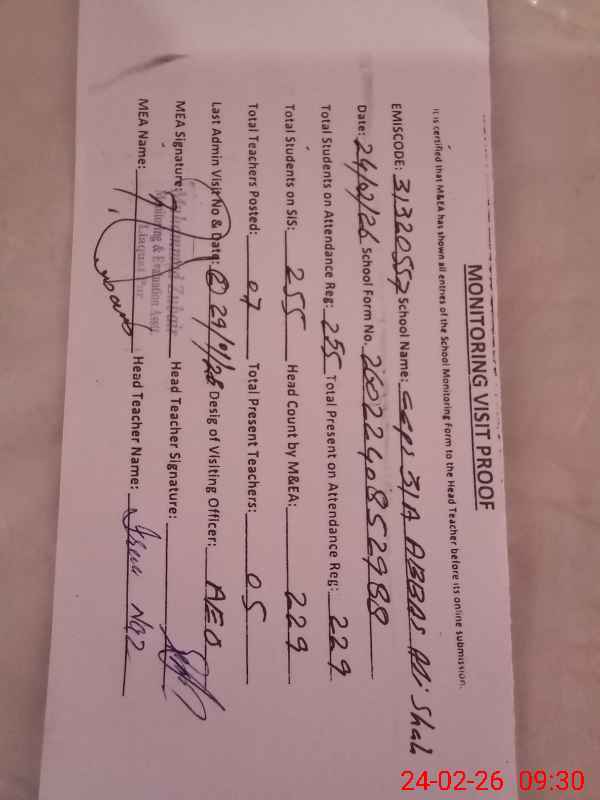 MONITORING VISIT PROOF
It is certified that M&EA has shown all entries of the School Monitoring Form to the Head Teacher before its online submission.
EMISCODE: 31320557 School Name: 31A ABBAS Ali Shah
Date: 24/02/26 School Form No. 2602240852988
Total Students on Attendance Reg: 255 Total Present on Attendance Reg: 229
Total Students on SIS: 255 Head Count by M&EA: 229
Total Teachers Posted: 07 Total Present Teachers: 05
Last Admin Visit No & Date: 29/01/26 Desig of Visiting Officer: AEO
MEA Signature: Head Teacher Signature:
Muhammad Zubair
Monitoring & Evaluation Asstt
Liaquat Pur
MEA Name: Head Teacher Name: Naz
24-02-26 09:30